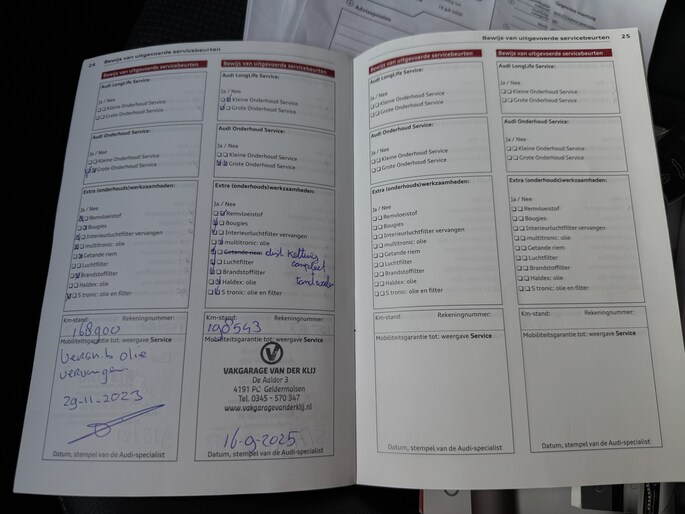 24 Bewijs van uitgevoerde servicebeurten
Bewijs van uitgevoerde servicebeurten
Audi LongLife Service:
Ja / Nee
Kleine Onderhoud Service
Grote Onderhoud Service
Audi Onderhoud Service:
Ja / Nee
Kleine Onderhoud Service
Grote Onderhoud Service
Extra (onderhouds)werkzaamheden:
Ja / Nee
Remvloeistof
Bougies
Interieurluchtfilter vervangen
multitronic: olie
Getande riem
Luchtfilter
Brandstoffilter
Haldex: olie
S tronic: olie en filter
Km-stand: Rekeningnummer:
168900
Mobiliteitsgarantie tot: weergave Service
olie
vervangen
29-11-2023
Datum, stempel van de Audi-specialist
Bewijs van uitgevoerde servicebeurten
Audi LongLife Service:
Ja / Nee
Kleine Onderhoud Service
Grote Onderhoud Service
Audi Onderhoud Service:
Ja / Nee
Kleine Onderhoud Service
Grote Onderhoud Service
Extra (onderhouds)werkzaamheden:
Ja / Nee
Remvloeistof
Bougies
Interieurluchtfilter vervangen
multitronic: olie
Getande riem dist Ketting
Luchtfilter compleet
Brandstoffilter
Haldex: olie
S tronic: olie en filter
Km-stand: Rekeningnummer:
198543
Mobiliteitsgarantie tot: weergave Service
VAKGARAGE VAN DER KLIJ
De Aaldor 3
4191 PC Geldermalsen
Tel. 0345 - 570 347
www.vakgaragevanderklij.nl
16-9-2025
Datum, stempel van de Audi-specialist
Bewijs van uitgevoerde servicebeurten 25
Bewijs van uitgevoerde servicebeurten
Audi LongLife Service:
Ja / Nee
Kleine Onderhoud Service
Grote Onderhoud Service
Audi Onderhoud Service:
Ja / Nee
Kleine Onderhoud Service
Grote Onderhoud Service
Extra (onderhouds)werkzaamheden:
Ja / Nee
Remvloeistof
Bougies
Interieurluchtfilter vervangen
multitronic: olie
Getande riem
Luchtfilter
Brandstoffilter
Haldex: olie
S tronic: olie en filter
Km-stand: Rekeningnummer:
Mobiliteitsgarantie tot: weergave Service
Datum, stempel van de Audi-specialist
Bewijs van uitgevoerde servicebeurten
Audi LongLife Service:
Ja / Nee
Kleine Onderhoud Service
Grote Onderhoud Service
Audi Onderhoud Service:
Ja / Nee
Kleine Onderhoud Service
Grote Onderhoud Service
Extra (onderhouds)werkzaamheden:
Ja / Nee
Remvloeistof
Bougies
Interieurluchtfilter vervangen
multitronic: olie
Getande riem
Luchtfilter
Brandstoffilter
Haldex: olie
S tronic: olie en filter
Km-stand: Rekeningnummer:
Mobiliteitsgarantie tot: weergave Service
Datum, stempel van de Audi-specialist